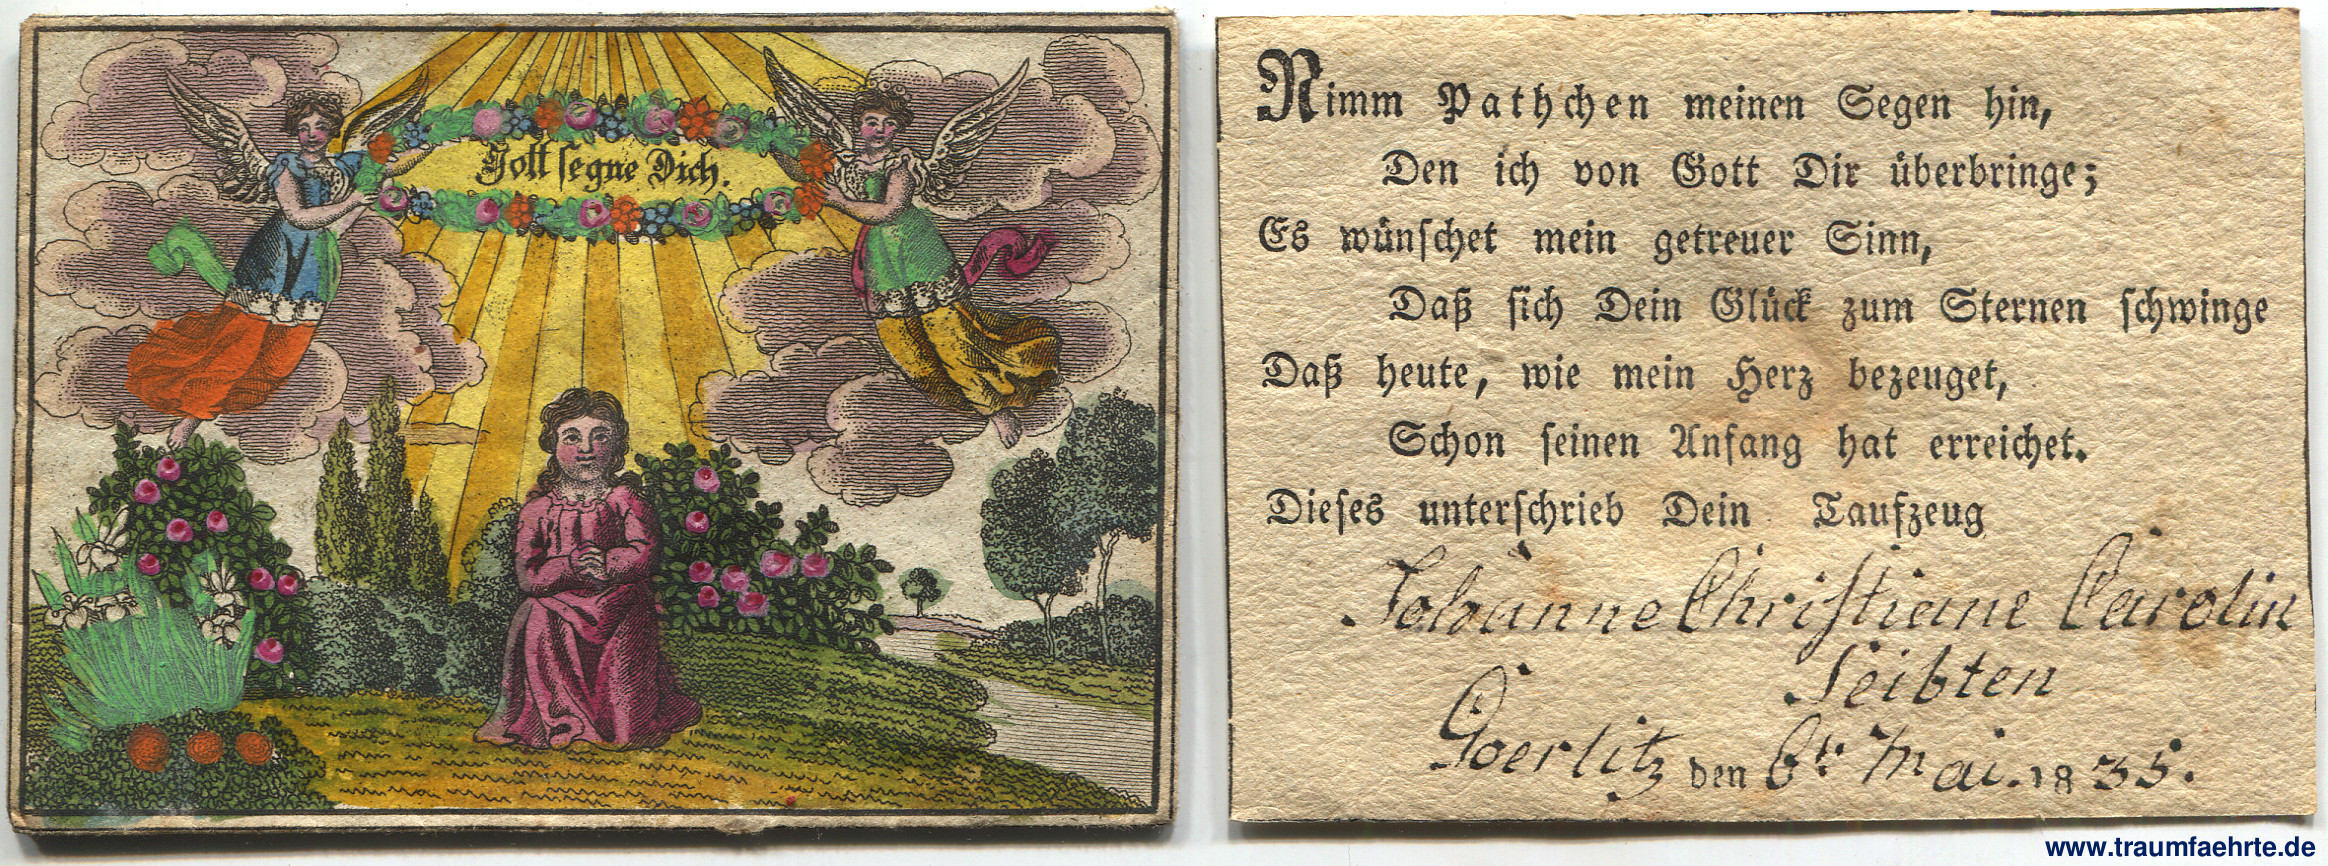 Gott segne Dich.
Nimm Pathchen meinen Segen hin,
Den ich von Gott Dir überbringe;
Es wünschet mein getreuer Sinn,
Daß sich Dein Glück zum Sternen schwinge
Daß heute, wie mein Herz bezeuget,
Schon seinen Anfang hat erreichet.
Dieses unterschrieb Dein Taufzeug
Johanne Christiane Carolin
Seibten
Goerlitz den 6tn Mai. 1835.
www.traumfaehrte.de